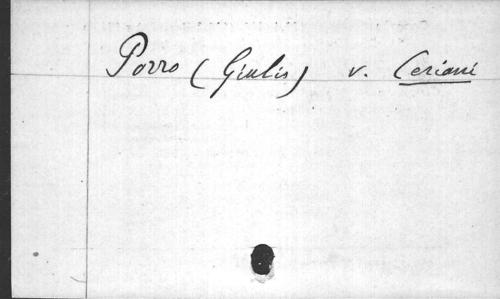 Porro (Giulio) v. Ceriani